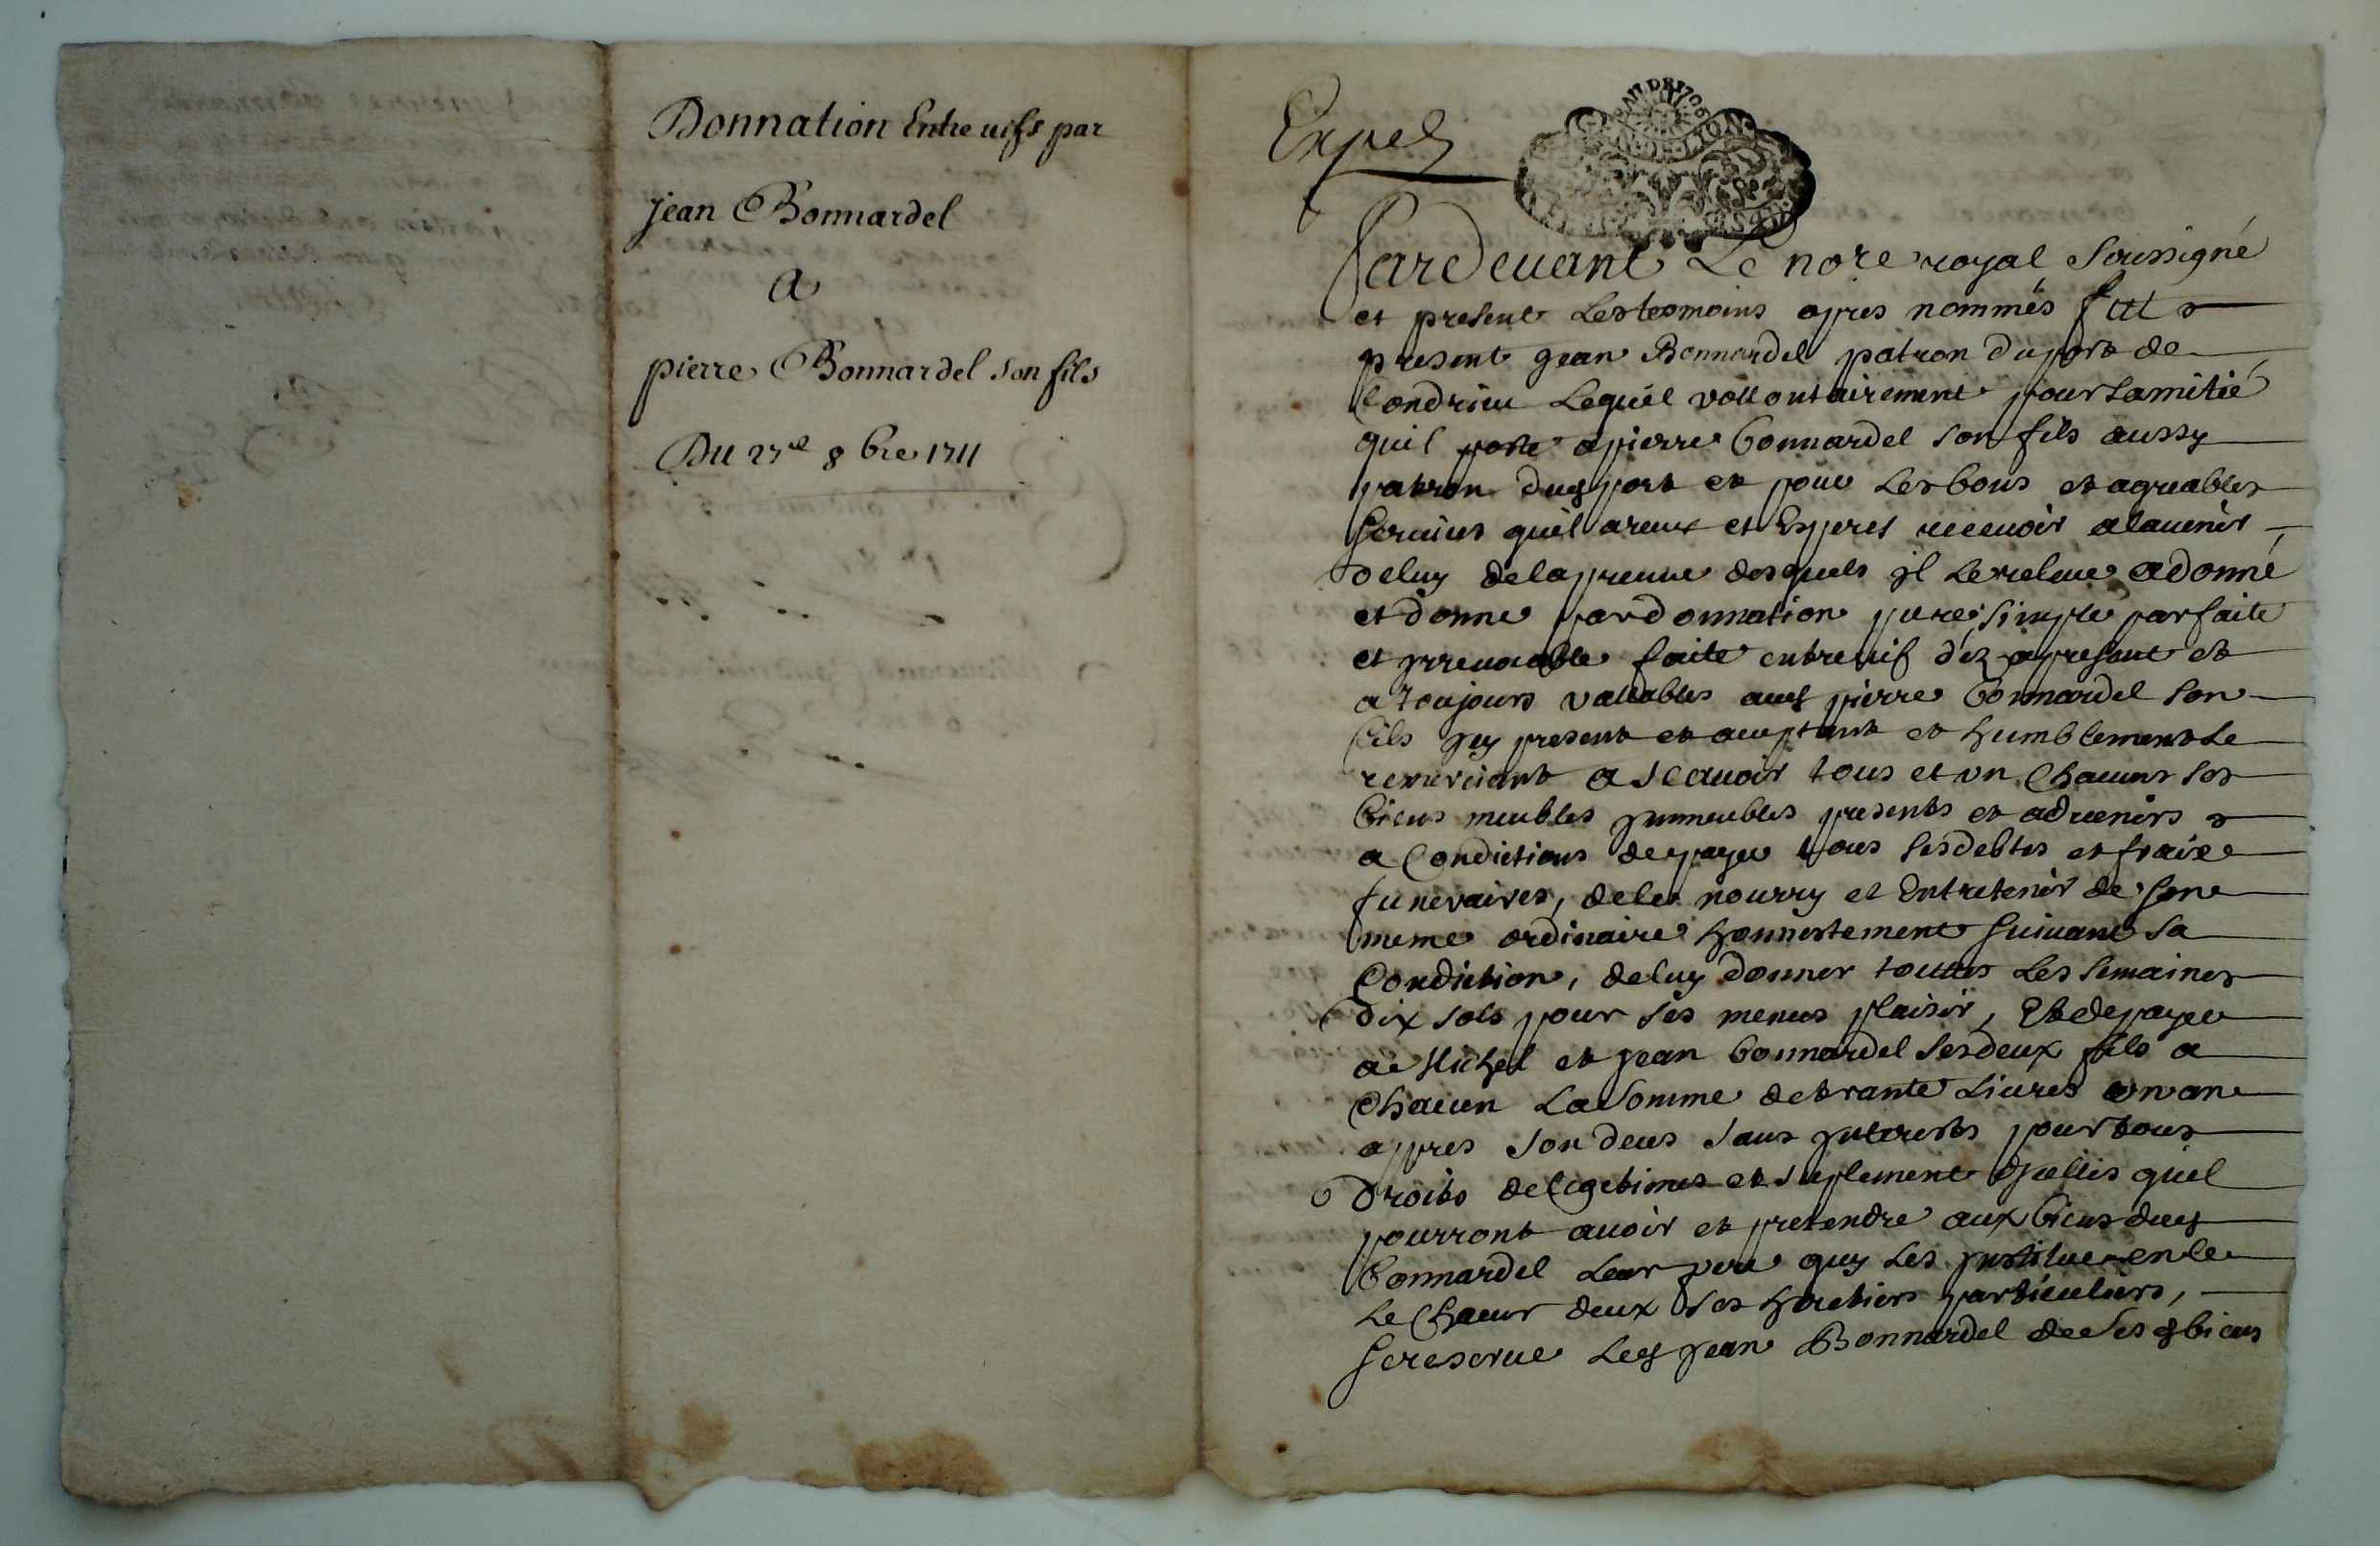 Donnation Entre vifs par
jean Bonnardel
A
pierre Bonnardel son fils
Du 27el 8bre 1711
Expe
Pardevant Le nore royal soussigné
et present Les tesmoins apres nommés fut
present jean Bonnardel patron du port de
Condrieu Lequel vollontairement pour Lamitié
quil porte a pierre bonnardel son fils aussy
patron dud port et pour Les bons et agreables
services quil a receu et Esperes recevoir a lavenir
de luy de la preuve desquels jl Le releve a donné
et donne par donnation pure simple parfaite
et jrrevocable faite entre vif déz apresent et
a toujours vallables aud pierre bonnardel son
fils jcy present et aceptant et humblement Le
remerciant a scavoir tous et vn chacuns ses
biens meubles jmmeubles presents et advenirs
a Condictions de payer tous ses debtes et fraix
funeraires, de le nourry et Entretenir de son
meme ordinaire honnestement suivant sa
Condiction, de luy donner touttes Les semaines
dix sols pour ses menus plaisir, Et de payer
a Michel et jean bonnardel ses deux fils a
Chacun La somme de trante Livres vn an
appres son deces sans jnterests pour tous
droits de legetimes et suplement djcelles quil
pourront avoir et pretendre aux biens dud
bonnardel Leur pere quy Les jnstitue en le
Le chacun deux ses heretiers particuliers,
se reserve Led jean Bonnardel de ses d biens